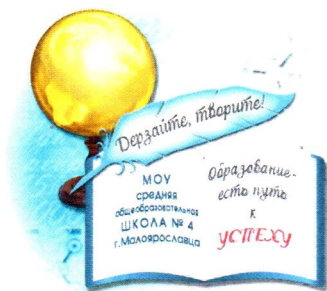 Дерзайте, творите!
МОУ
средняя
общеобразовательная
ШКОЛА № 4
г.Малоярославца
Образование-
есть путь
к
УСПЕХУ